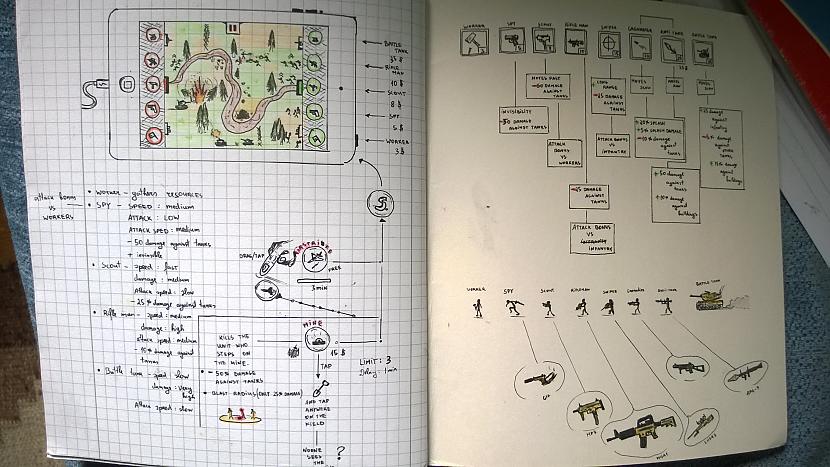 BATTLE
TANK
35 $
RIFLE
MAN
10 $
SCOUT
8 $
SPY
5 $
WORKER
3 $
attack bonus
vs
WORKERS
• WORKER - gathers RESOURCES
• SPY - SPEED: medium
ATTACK: LOW
ATTACK SPEED: medium
- 50 damage against tanks
+ invisible
• SCOUT - speed: fast
damage: medium
Attack speed: slow
- 25% damage against tanks
• Rifle man - speed: medium
damage: high
attack speed: medium
- 10% damage against
tanks
• Battle tank - speed slow
damage: very
high
Attack speed: slow
DRAG/TAP
AIRSTRIKE
FREE
3 min
MINE
KILLS THE
UNIT WHO
STEPS ON
THE MINE.
15 $
• - 50% DAMAGE
AGAINST TANKS
• BLAST RADIUS (ONLY 25% DAMAGE)
TAP
AND TAP
ANYWHERE
ON THE
FIELD
LIMIT: 3
Delay: 1 min
NOONE
SEES
THE
?
WORKER
SPY
SCOUT
RIFLE MAN
SNIPER
GRENADIER
ANTI TANK
BATTLE TANK
MOVES FAST
- 50 DAMAGE
AGAINST
TANKS
INVISIBILITY
- 50 DAMAGE
AGAINST TANKS
ATTACK
BONUS
VS
WORKERS
LONG
RANGE
- 25 DAMAGE
AGAINST
TANKS
ATTACK BONUS
VS
INFANTRY
- 25 DAMAGE
AGAINST
TANKS
ATTACK BONUS
VS
INFANTRY
MOVES
SLOW
MOVES
SLOW
MOVES
SLOW
+ 50 damage
against
tanks
+ 10% damage
against
buildings
damage
against
infantry
WORKER
SPY
SCOUT
RIFLEMAN
SNIPER
GRENADIER
ANTI-TANK
BATTLE TANK
MP5
M4A1
RPG-7